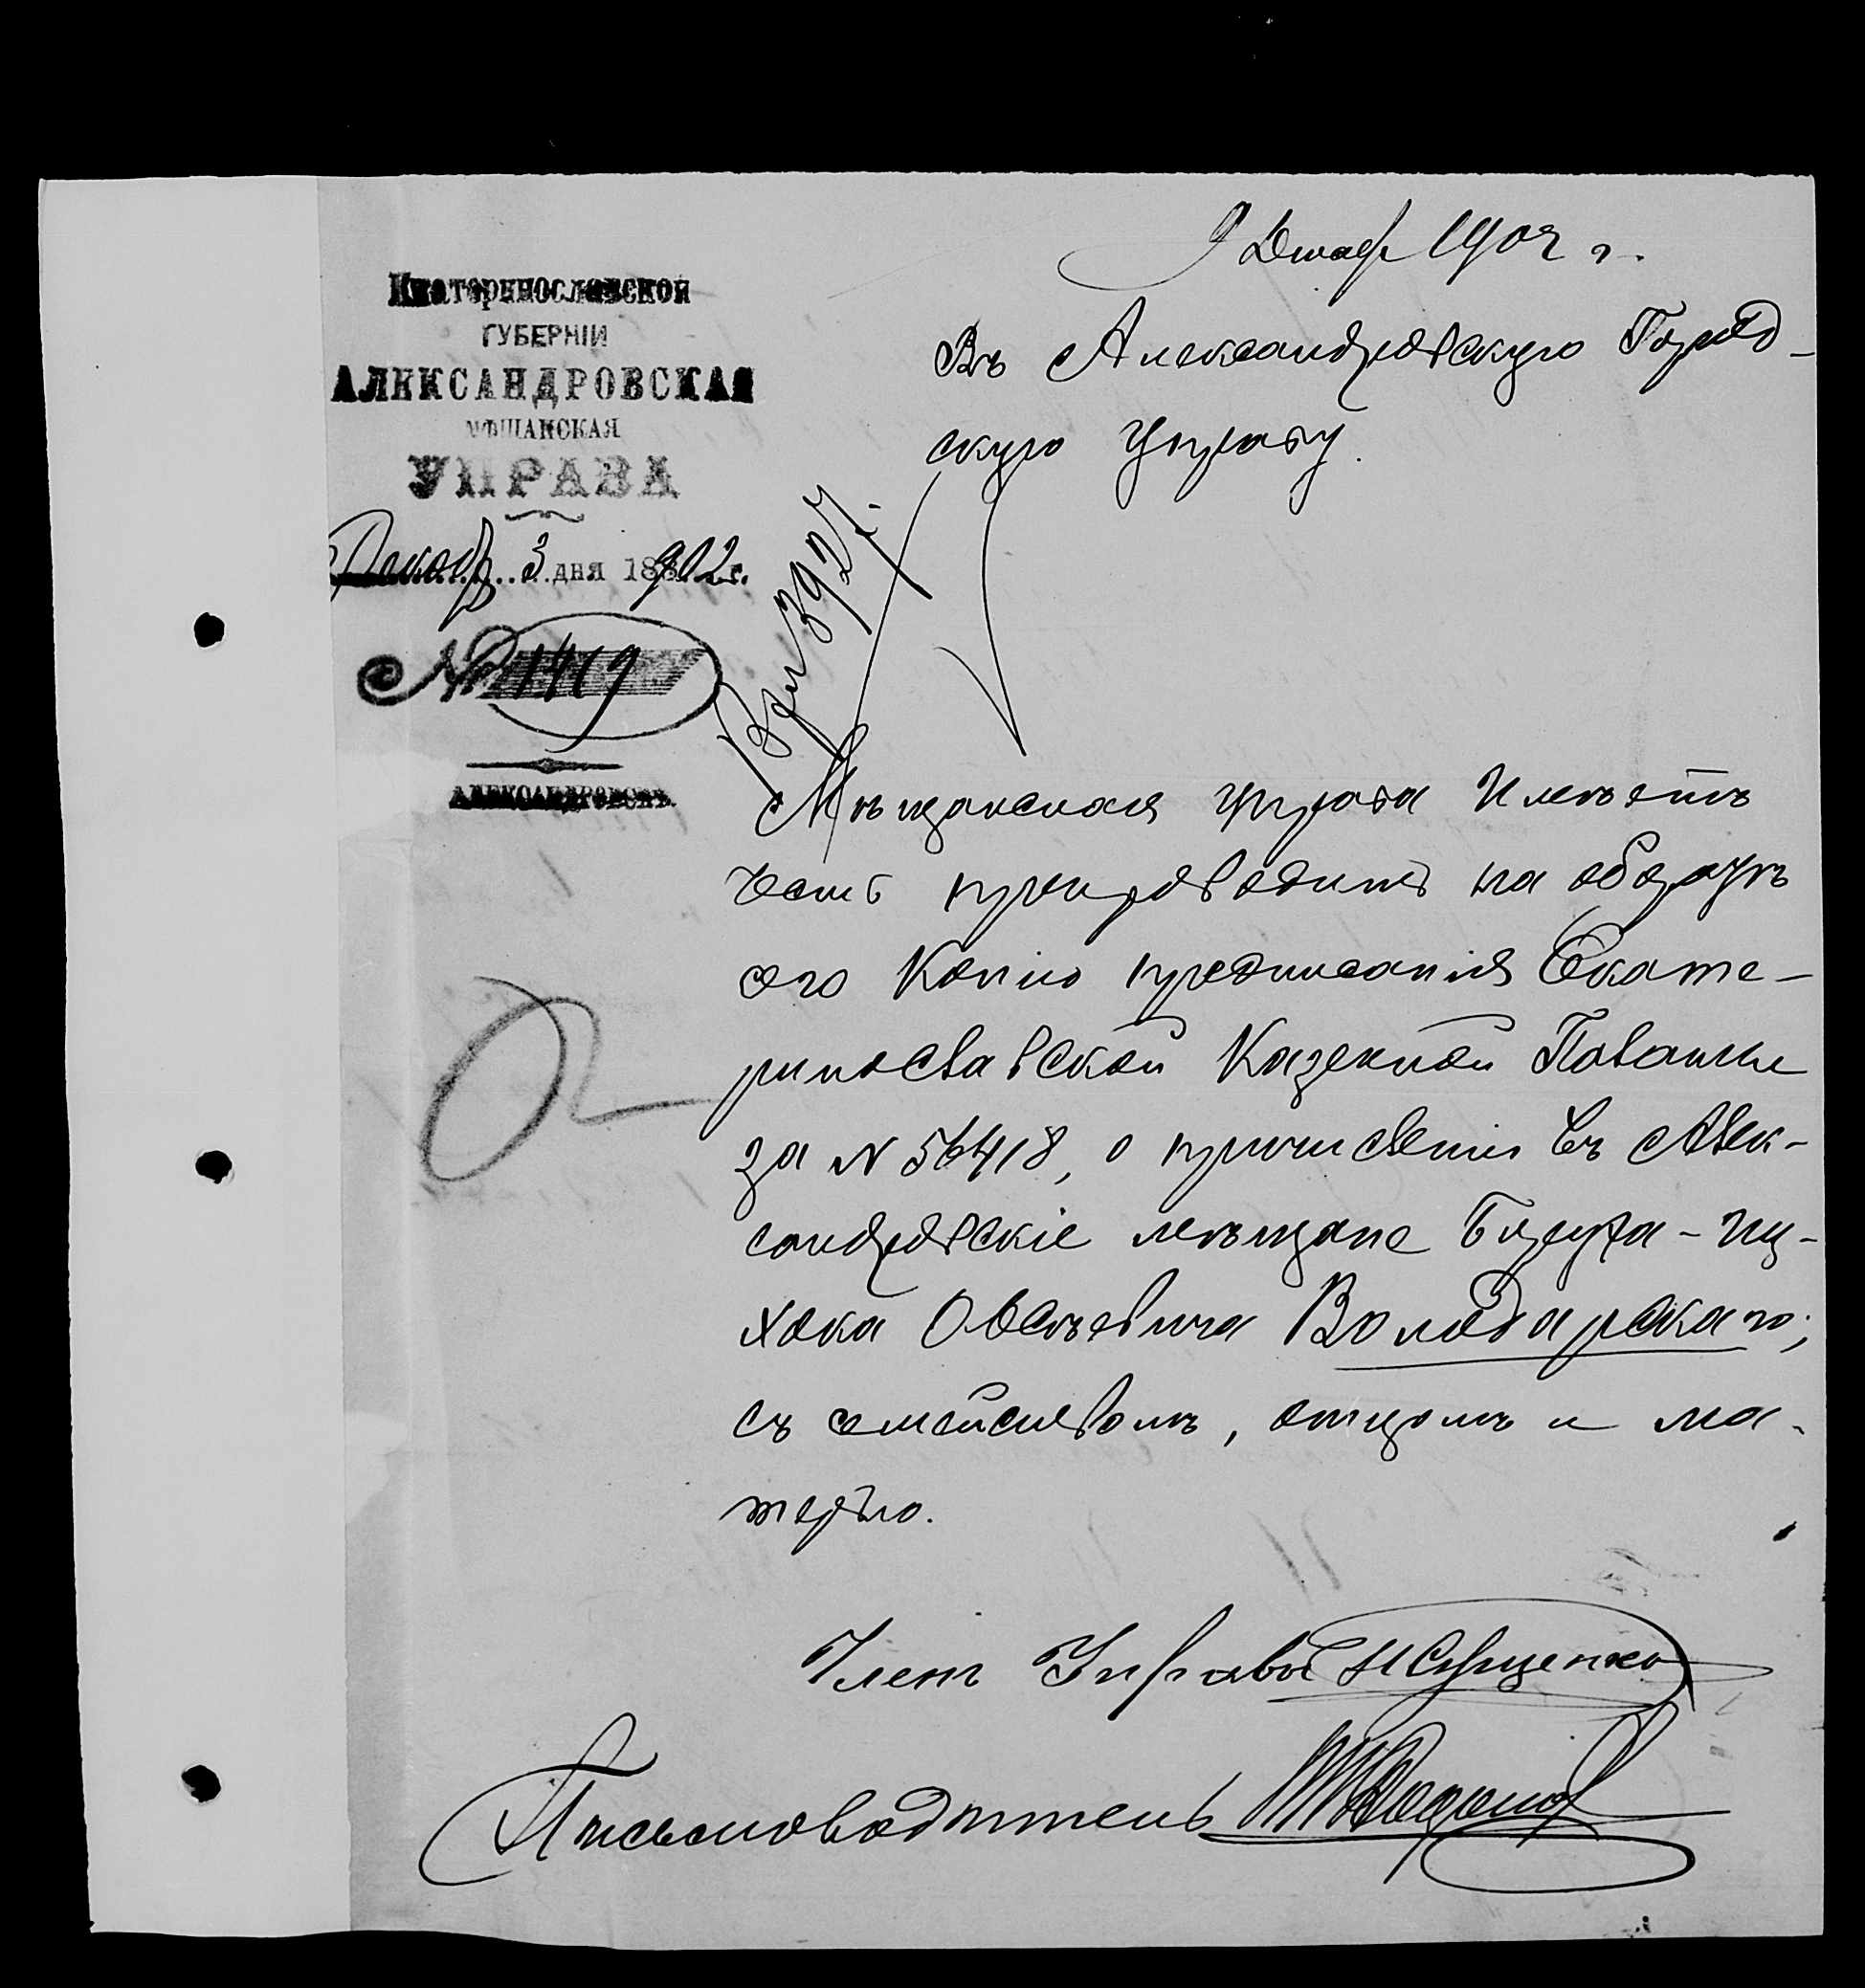 9 Декаб 1902 г.
Екатеринославской
ГУБЕРНІИ
АЛЕКСАНДРОВСКАЯ
МѢЩАНСКАЯ
УПРАВА
Декаб 3 дня 1902 г.
№ 1419
АЛЕКСАНДРОВСКЪ.
Въ Александровскую Город-
скую Управу.
3927.
Мѣщанская управа Имѣетъ
честь препроводить на оборотѣ
сего Копію предписанія Екате-
ринославской Казенной Палаты
за N 56418, о причисленіи въ Алек-
сандровскіе мѣщане Боруха-Иц-
хока Овсѣевича Володарскаго;
съ семействомъ, отцомъ и ма-
терью.
Членъ Управы
Письмоводитель